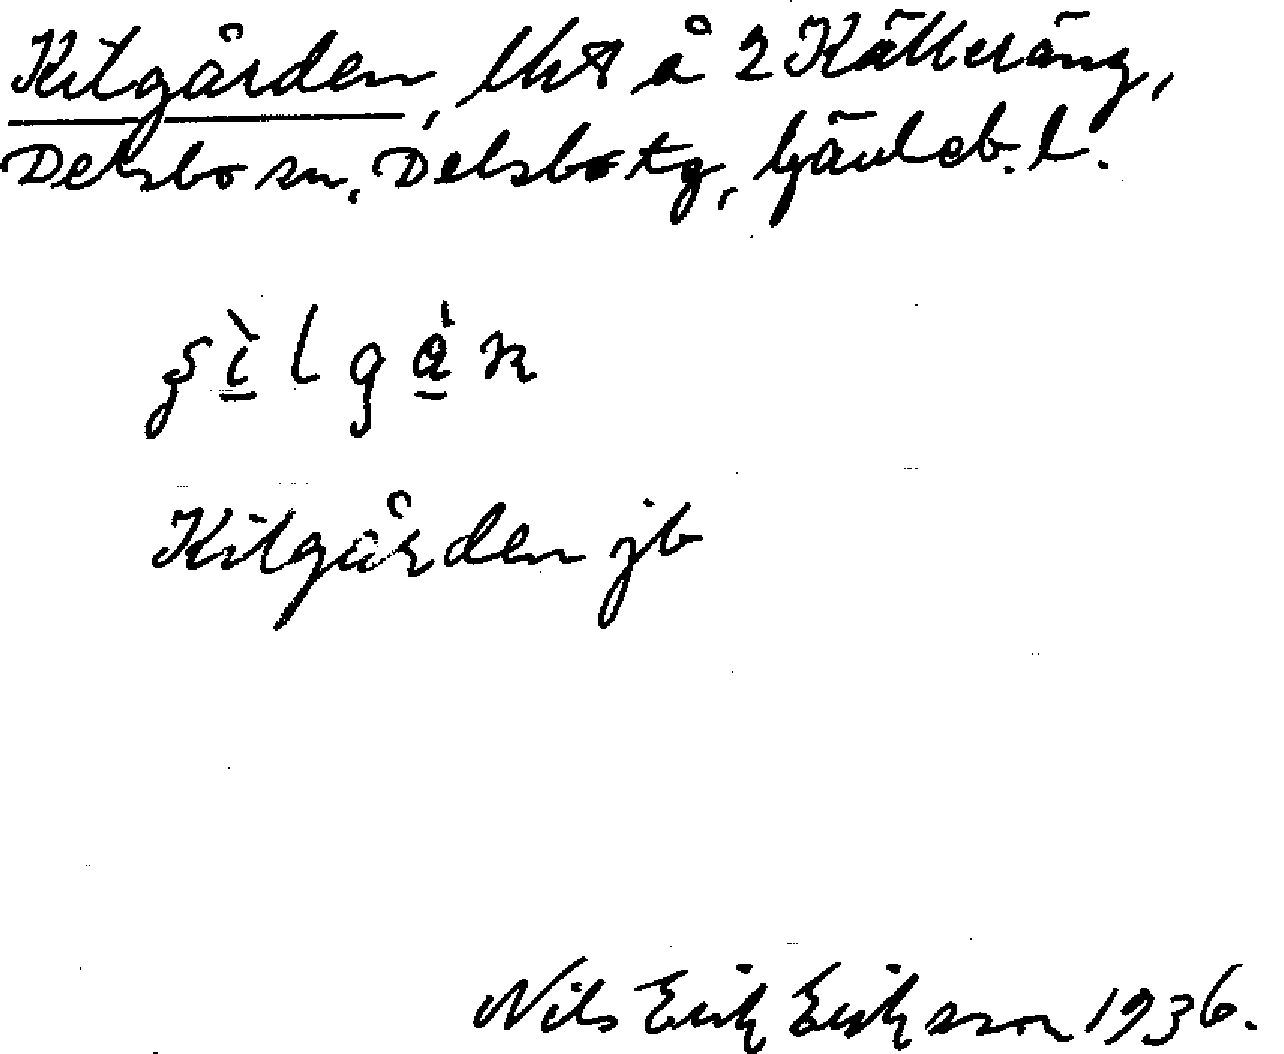 Kilgården, lht å 2 Källeräng,
Delsbo sn. Delsbo tg, Gävleb. l.
Kilgården jb
Nils Erik Eriksson 1936.